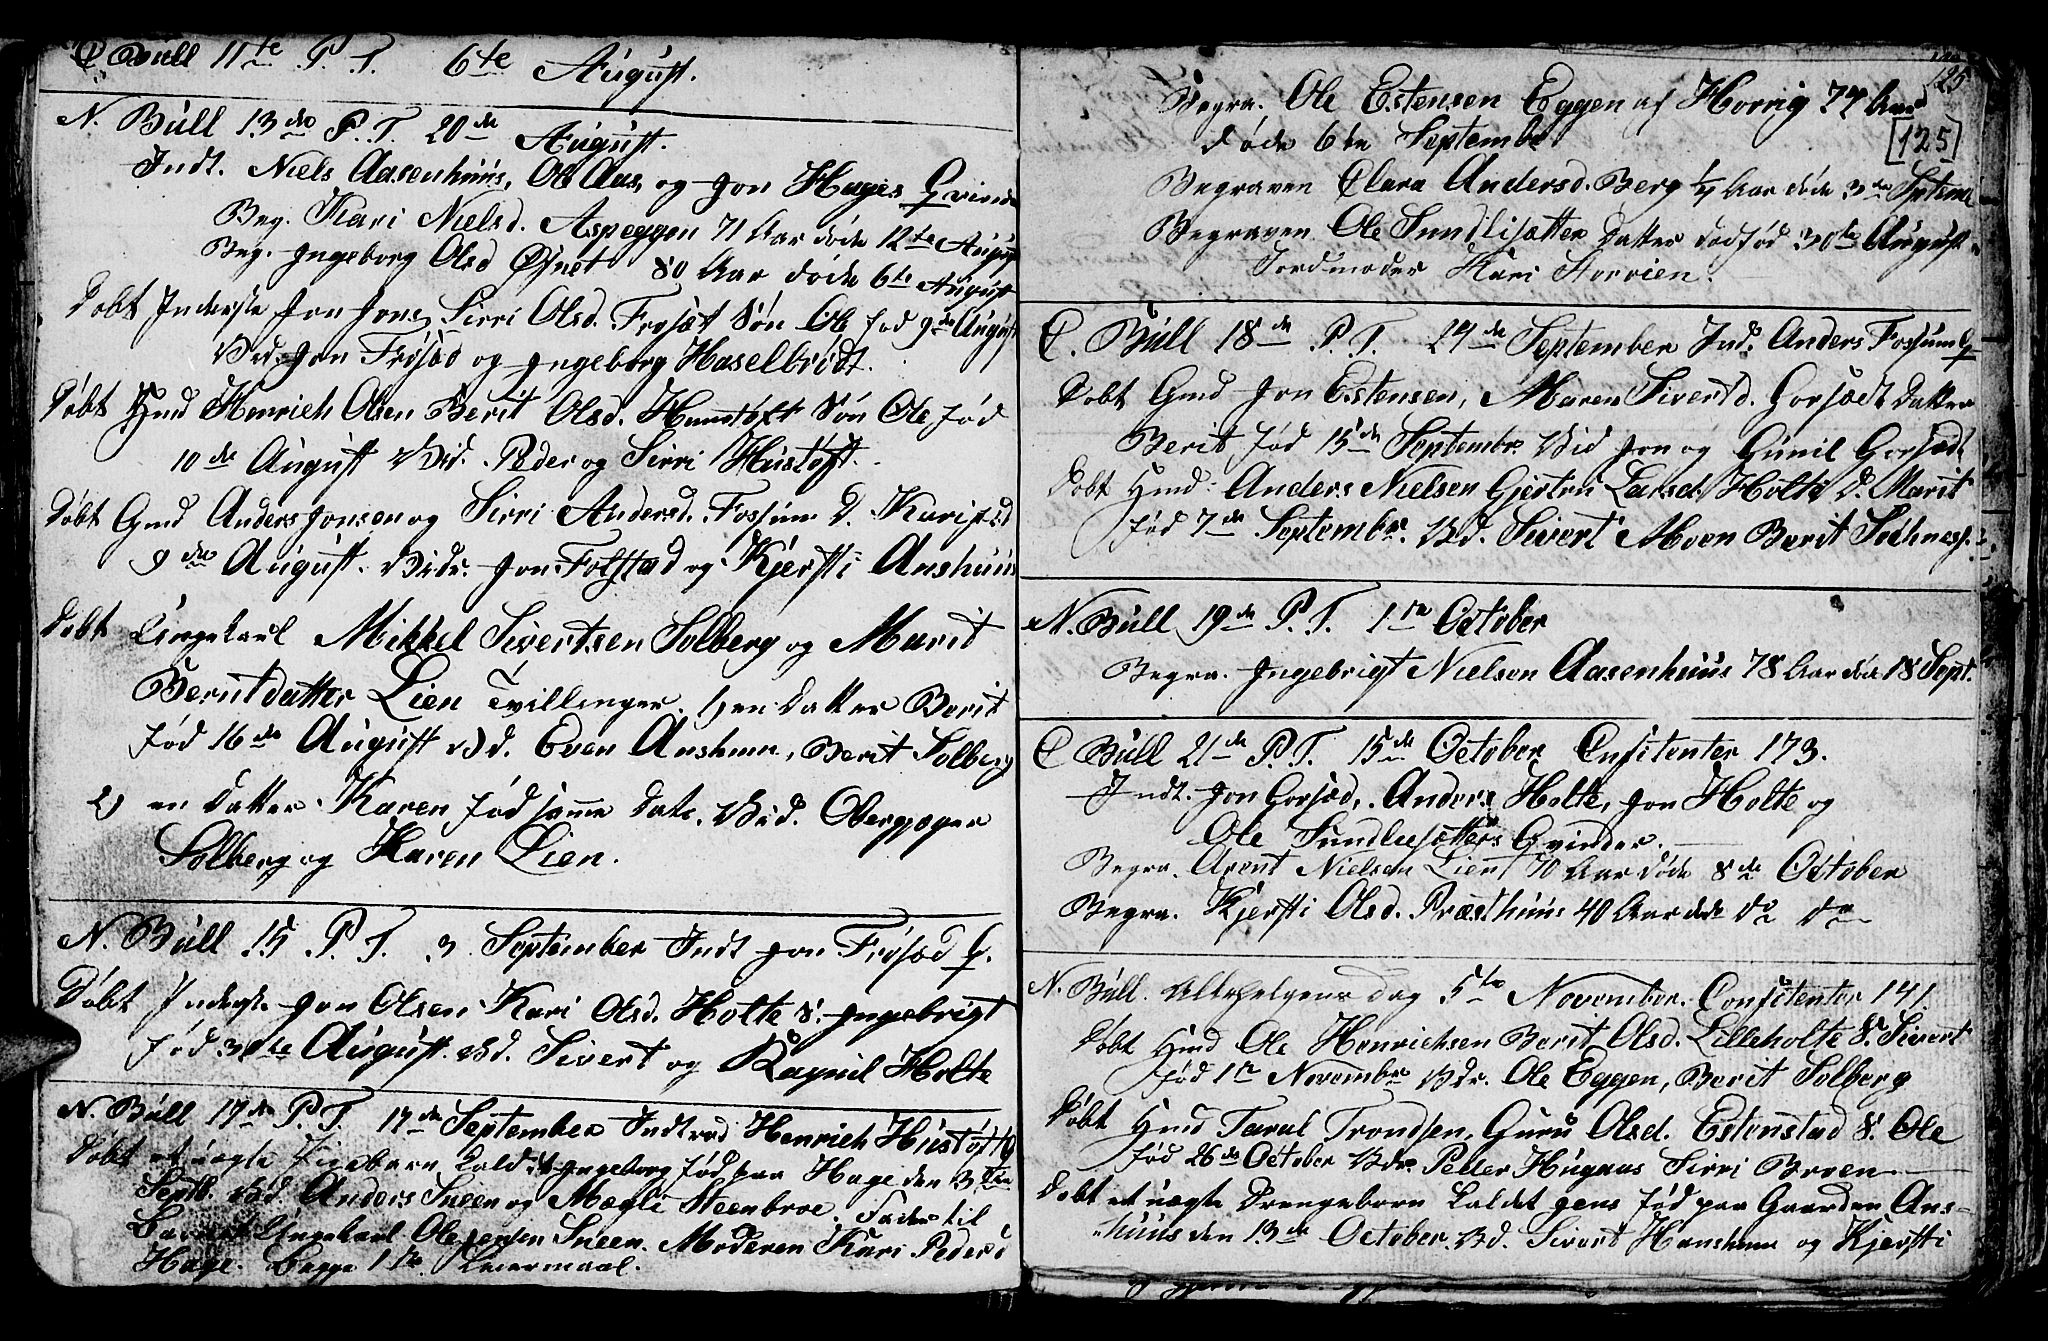 C Bull 11te P. T. 6te August.
N. Bull 13de P. T. 20de August.
Indt. Niels Aasenhuus, Ole Aas, og Jon Hages Qvinde
Beg. Kari Nielsd. Aspeggen 71 Aar døde 12te August
Beg. Ingeborg Olsd Øsnet 80 Aar døde 6te August
Døbt Inderste Jon Jons, Sirri Olsd. Frøsæt Søn Ole fød 9de August
Vid. Jon Frøsæd og Ingeborg Haselbridt.
Døbt Hmd Henrich Olsen Berit Olsd. Hunstoft Søn Ole fød
10de August Vid. Peder og Sirri Hustøft.
Døbt Gmd Anders Jonsen og Sirri Andersd. Fossum D. Kari fød
9de August. Vidr. Jon Folstad og Kjersti Anshuus
Døbt Ungekarl Mikkel Sivertsen Solberg og Marit
Berntdatter Lien Tvillinger. 1) en Datter Berit
fød 16de August Vd. Even Anshuus, Berit Solberg
2) en Datter Karen fød samme Dato. Vid. Oberjæger
Solberg og Karen Lien.
N. Bull 15 P. T. 3 September Indt Jon Frøsæd Q.
Døbt Inderste Jon Olsen Kari Olsd. Holte S. Ingebrigt
fød 30te August. Vd. Sivert og Ragnil Holte
N. Bull 17de P. T. 17de September Indtræd Henrich Hustøft Q
Døbt et uægte Pigebarn kaldet Ingeborg fød paa Hage den 3die
Septb. Vid. Anders Sneen og Magli Steenbroe. Fader til
Barnet Ungekarl Ole Jensen Sneen. Moderen Kari Pedersd
Hage. Begge 1te Leiermaal.
125
Begra. Ole Estensen Eggen af Horrig 74 Aar
[125]
døde 6te Septembr
Begraven Clara Andersd. Berg 1/4 Aar døde 3de Septemb
Begraven Ole Sundlisætter Datter dødfød 30te August
Jordmoder Kari Storrien.
C. Bull 18de P. T. 24de September Ind. Anders Fossum Q
Døbt Gmd Jon Estensen, Maren Sivertd. Gorsædt Datter
Berit fød 15de Septembr. Vid Jon og Gunil Gorsæd.
Døbt Hmd. Anders Nielsen Gjertru Larsd. Holte D. Marit
fød 7de Septembr. Vd. Sivert Moen Berit Sochnesf.
N. Bull 19de P. T. 1te October
Begra. Ingebrigt Nielsen Aasenhuus 78 Aar død 18 Sept.
C Bull 21de P. T. 15de October Confitenter 173.
Indt. Jon Gorsæd, Anders Holte, Jon Holte og
Ole Sundlisætters Qvinder.
Begra. Arent Nielsen Lien 70 Aar døde 8de October
Begra. Kjersti Olsd. Præsthuus 40 Aar døde do do
N. Bull. Allehelgens Dag 5te November. Confitenter 141.
Døbt Hmd Ole Henrichsen Berit Olsd. Lilleholte S. Sivert
fød 1te Novembr Vdr. Ole Eggen, Berit Solberg
Døbt Hmd Taral Trondsen, Guru Olsd. Estenstad S. Ole
fød 26de October Vdr. Peder Hugaas Sirri Broen
Døbt et uægte Drengebarn kaldet Jens fød paa Gaarden Ans-
huus den 13de October. Vd. Sivert Hanshuus og Kjersti